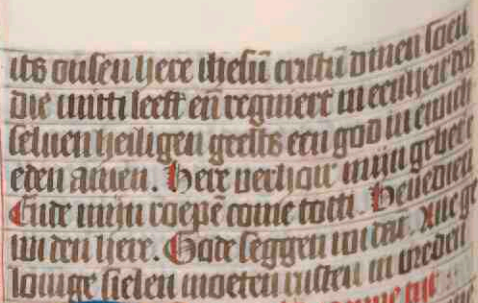 its onsen here ihesū cristū dinen soen
die mitti leeft eñ regniert in eenheit des
seluen heiligen geests een god in ewich
eden amen. Here verhoir mijn gebet
Ende mijn roepē come totti. Benedien
wi den here. Gode seggen wi dat. Alle ge
louige sielen moeten rusten in vreden